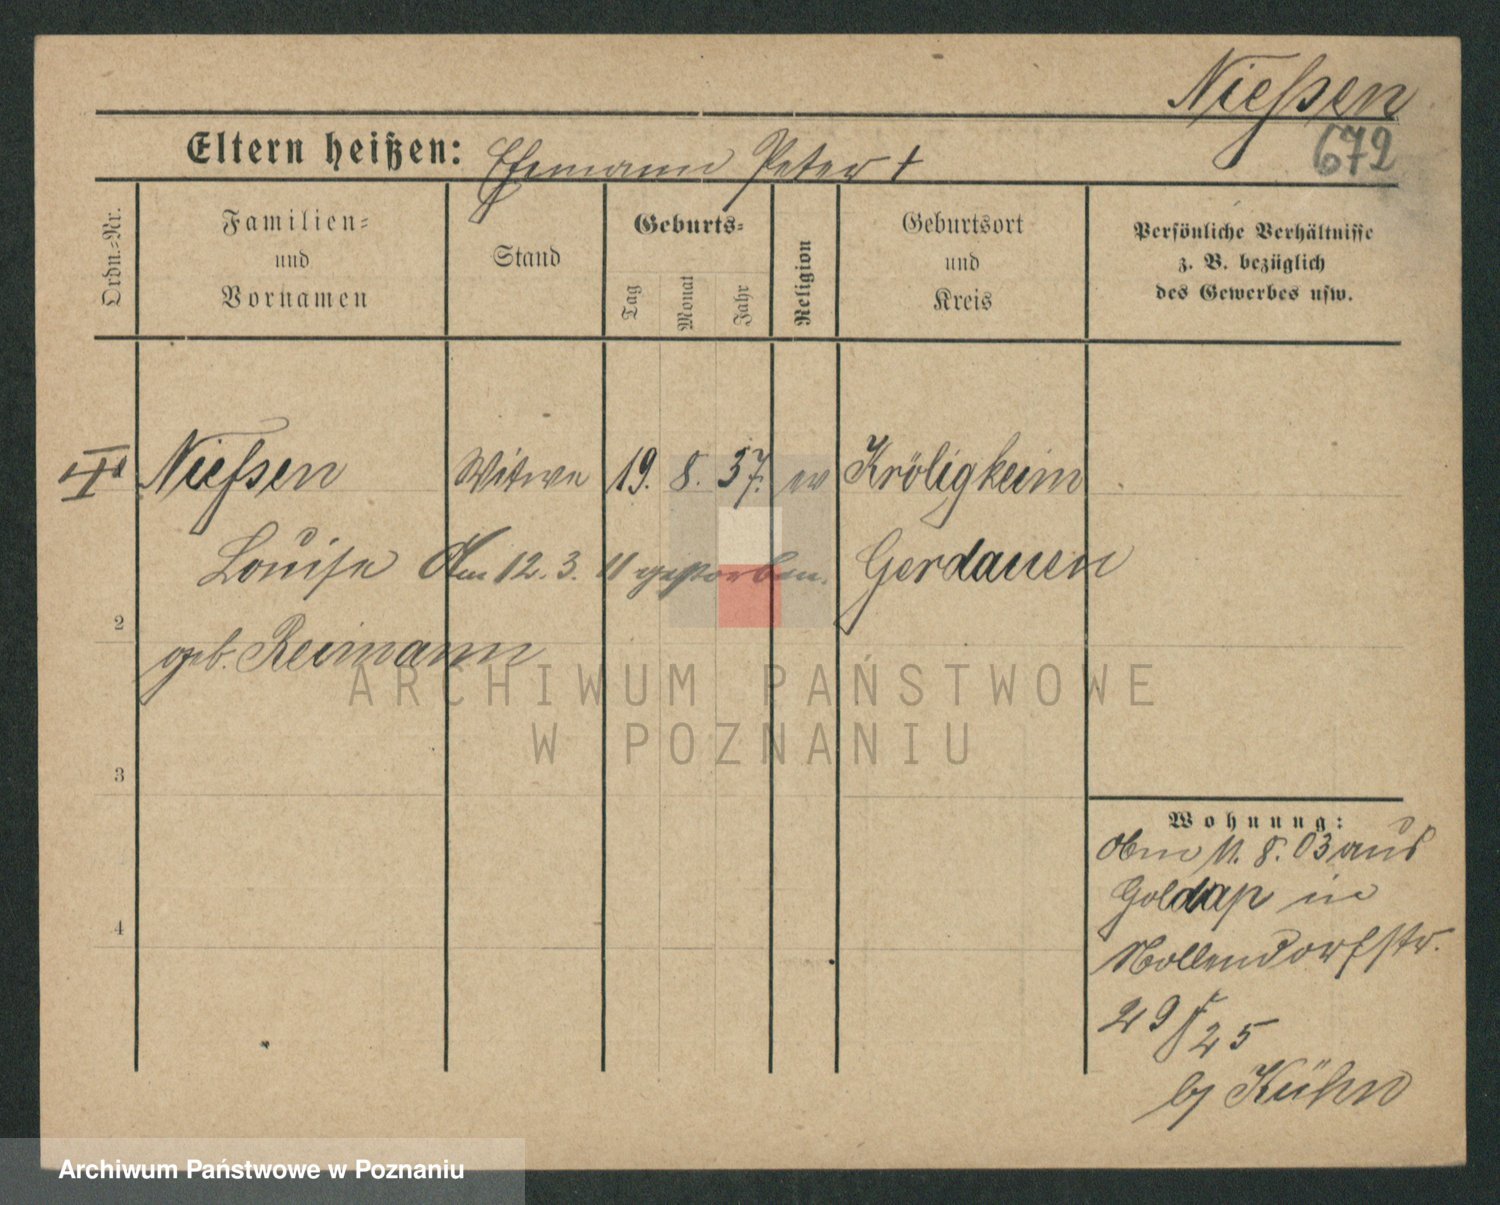 Nießen
672
Eltern heißen: Ehemann Peter †
Ordn.=Nr.
Familien=
und
Vornamen
Stand
Geburts=
Tag
Monat
Jahr
Religion
Geburtsort
und
Kreis
Persönliche Verhältnisse
z. B. bezüglich
des Gewerbes usw.
Nießen Witwe 19. 8. 37. ev Kröligkeim
Louise Am 12. 3. 11 gestorben. Gerdauen
2
geb. Reimann
ARCHIWUM PAŃSTWOWE
W POZNANIU
3
4
Wohnung:
Am 11. 8. 03 aus
Goldap in
Nollendorfstr.
29/25
bj Kühn
Archiwum Państwowe w Poznaniu